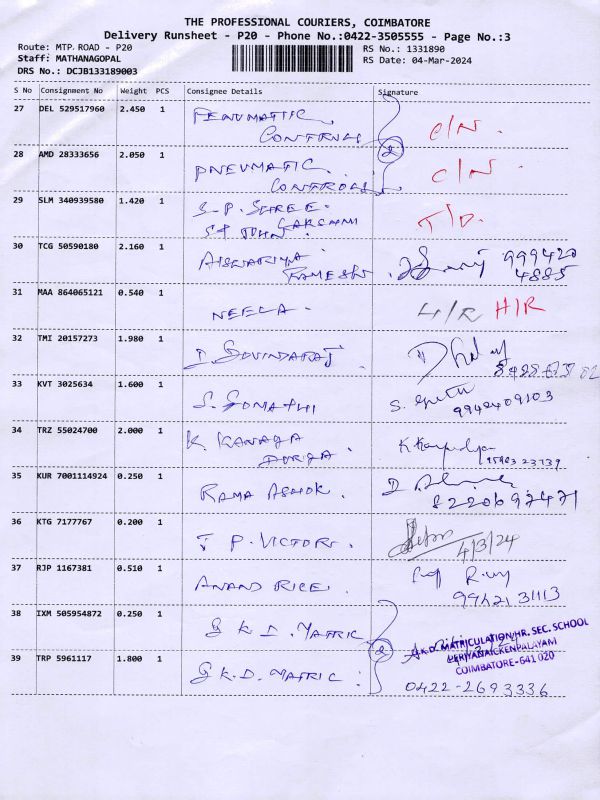 THE PROFESSIONAL COURIERS, COIMBATORE
Delivery Runsheet - P20 - Phone No.:0422-3505555 - Page No.:3
Route: MTP ROAD - P20
RS No.: 1331890
Staff: MATHANAGOPAL
RS Date: 04-Mar-2024
DRS No.: DCJB133189003
S No Consignment No Weight PCS Consignee Details Signature
27 DEL 529517960 2.450 1 PENUMATTIC CONTROLS C/N.
28 AMD 28333656 2.050 1 PNEUMATIC. CONTROLS C/N.
29 SLM 340939580 1.420 1 S.P. SHREE. T/D.
30 TCG 50590180 2.160 1 AISWARIYA RAMESH. 999420 4885
31 MAA 864065121 0.540 1 NEELA. H/R
32 TMI 20157273 1.980 1 D GOVINDARAJ
33 KVT 3025634 1.600 1 S. GOMATHI 9942409103
34 TRZ 55024700 2.000 1 K KANAGA DURGA. 95983 23739
35 KUR 7001114924 0.250 1 RAMA ASHOK. 8220697471
36 KTG 7177767 0.200 1 T P. VICTOR. 4/3/24
37 RJP 1167381 0.510 1 ANAND RICE. 99421 31113
38 IXM 505954872 0.250 1 G K D. MATRIC
39 TRP 5961117 1.800 1 G K.D. MATRIC.
G.K.D. MATRICULATION HR. SEC. SCHOOL
PERIYANAICKENPALAYAM
COIMBATORE-641 020
0422-2693336